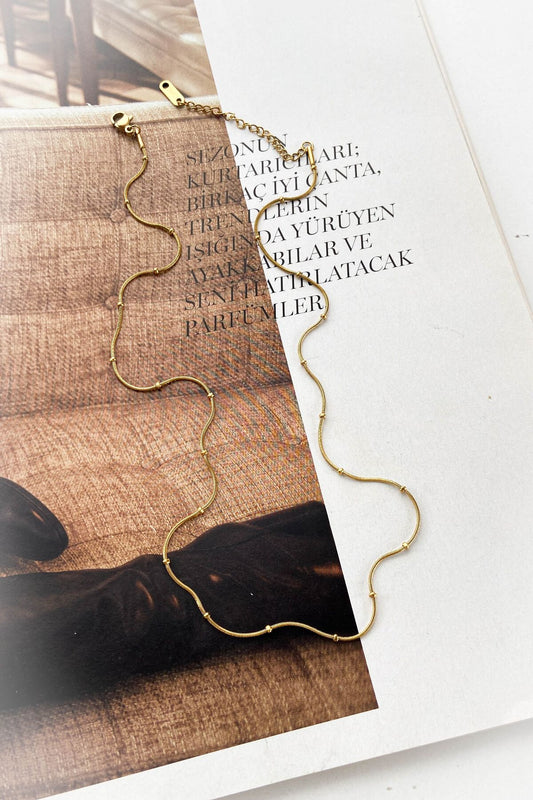 SEZONUN
KURTARICILARI;
BİRKAÇ İYİ ÇANTA,
TRENDLERİN
IŞIĞINDA YÜRÜYEN
AYAKKABILAR VE
SENİ HATIRLATACAK
PARFÜMLER